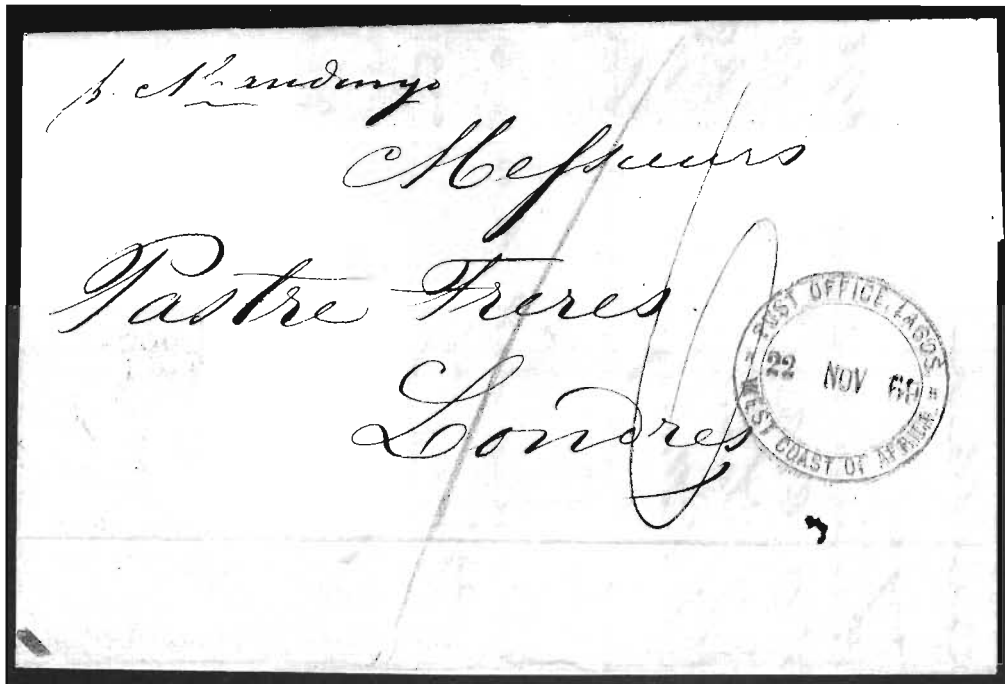 p. Mandingo
Messieurs
Pastre Freres
Londres
POST OFFICE. LAGOS
22 NOV
WEST COAST OF AFRICA